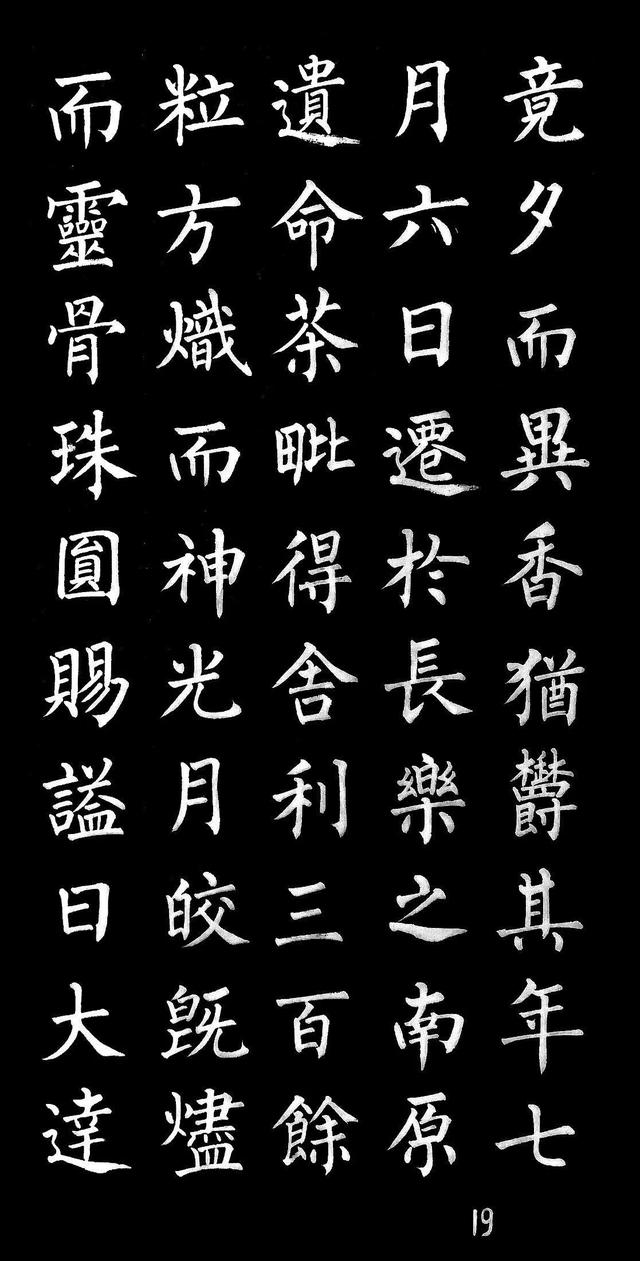 竟夕而異香猶欝其年七
月六日遷於長樂之南原
遺命茶毗得舍利三百餘
粒方熾而神光月皎既燼
而靈骨珠圓賜謚曰大達
19